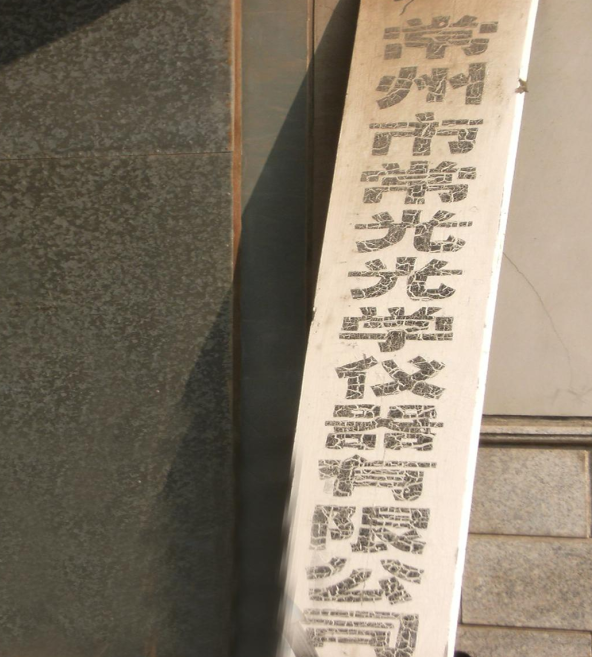 常州市常光光学仪器有限公司